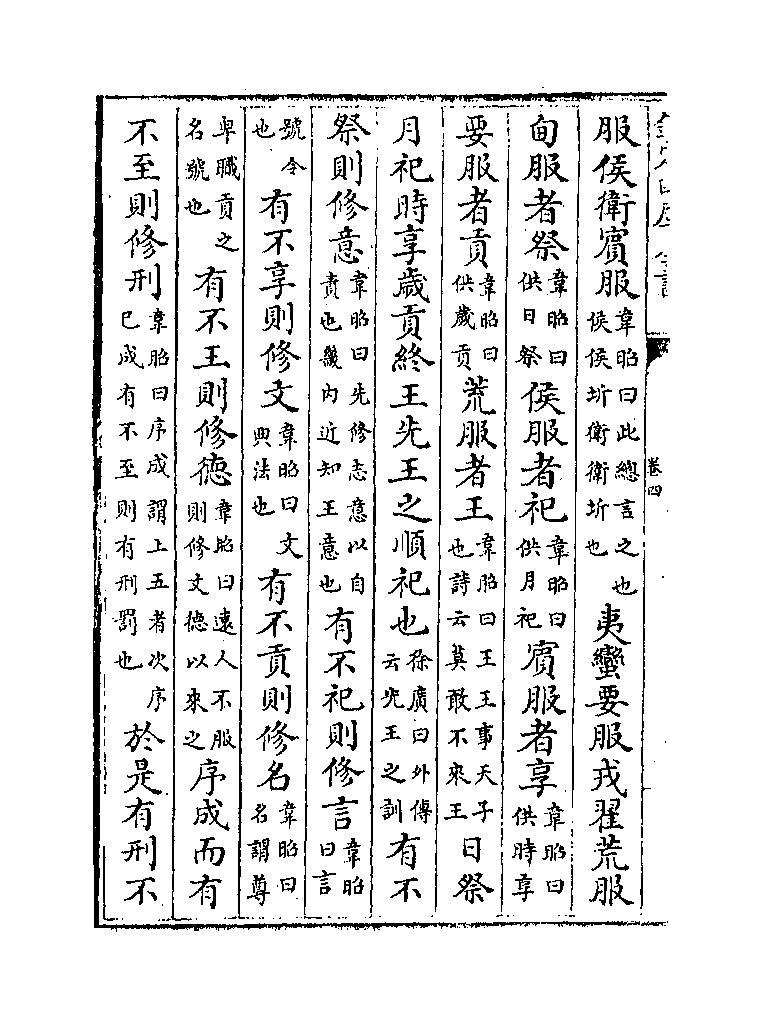 欽定四庫全書
卷四
服侯衛賓服韋昭曰此總言之也侯侯圻衛衛圻也夷蠻要服戎翟荒服
甸服者祭韋昭曰供日祭侯服者祀韋昭曰供月祀賓服者享韋昭曰供時享
要服者貢韋昭曰供歲貢荒服者王韋昭曰王王事天子也詩云莫敢不來王日祭
月祀時享歲貢終王先王之順祀也徐廣曰外傳云先王之訓有不
祭則修意韋昭曰先修志意以自責也畿内近知王意也有不祀則修言韋昭曰言
號令也有不享則修文韋昭曰文典法也有不貢則修名韋昭曰名謂尊
卑職貢之名號也有不王則修德韋昭曰遠人不服則修文德以來之序成而有
不至則修刑韋昭曰序成謂上五者次序已成有不至則有刑罰也於是有刑不